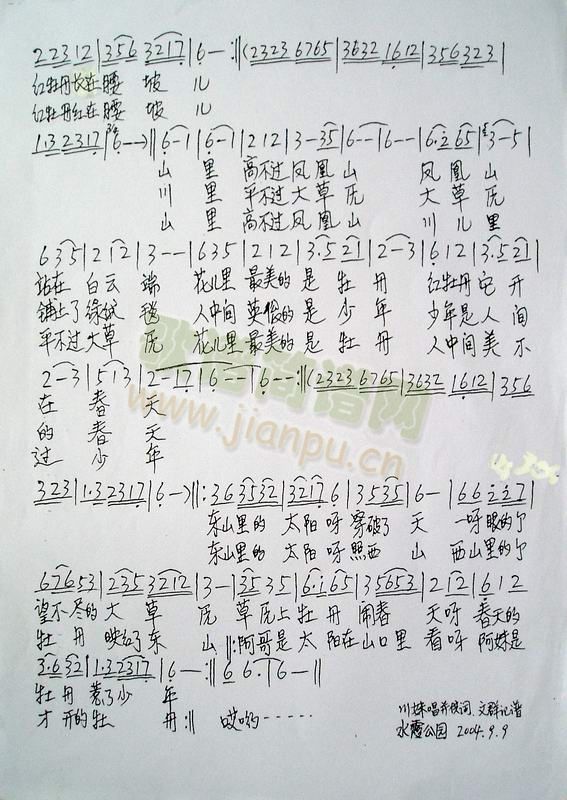 2 2 3 1 2 | 3 5 6 3 2 1 7 | 6 — :‖ ( 2 3 2 3 6 7 6 5 | 3 6 3 2 1 6 1 2 | 3 5 6 3 2 3 |
红牡丹长在腰 坡 儿
红牡丹红在腰 坡 儿
1·3 2 3 1 7 | 6 — ) ‖ 6 — 1 | 6 — 1 | 2 1 2 | 3 — 3 5 | 6 — — | 6 — — | 6·2 6 5 | 3 — 5 |
山 里 高不过凤凰山 凤凰山
川 里 平不过大草原 大草原
山 里 高不过凤凰山 川儿里
6 3 5 | 2 1 2 | 3 — — | 6 3 5 | 2 1 2 | 3·5 2 1 | 2 — 3 | 6 1 2 | 3·5 2 1 |
站在 白云 端 花儿里 最美的 是 牡 丹 红牡丹它 开
铺上了绿绒 毯 人中间 英俊的 是 少 年 少年是人 间
平不过大草 原 花儿里 最美的 是 牡 丹 人中间美 不
2 — 3 | 5 1 3 | 2 — 1 7 | 6 — — | 6 — — :‖ ( 2 3 2 3 6 7 6 5 | 3 6 3 2 1 6 1 2 | 3 5 6
在 春 天
的 春 天
过 少 年
www.jianpu.cn
3 2 3 | 1·3 2 3 1 7 | 6 — ) ‖: 3 6 3 5 3 2 | 3 2 1 7 6 | 3 5 3 5 | 6 — | 6 6 2 2 7 |
东山里的 太阳呀 穿破了 天 一呀眼的个
东山里的 太阳呀 照西 山 西山里的个
6 7 6 5 3 | 2 3 5 3 2 1 2 | 3 — | 3 5 3 5 | 6·1 6 5 | 3 5 6 5 3 | 2 1 2 | 6 1 2
望不尽的 大 草 原 草原上 牡 丹 闹春 天呀 春天的
牡 丹 映红了东 山 ‖: 阿哥是 太 阳在山口里 看呀 阿妹是
3·6 3 2 | 1·3 2 3 1 7 | 6 — :‖ 6 6· | 6 — ‖
牡丹 惹了少 年
才 开的牡 丹 :‖ 哎哟 ······
川妹唱并供词、文群记谱
公园 2004.9.9